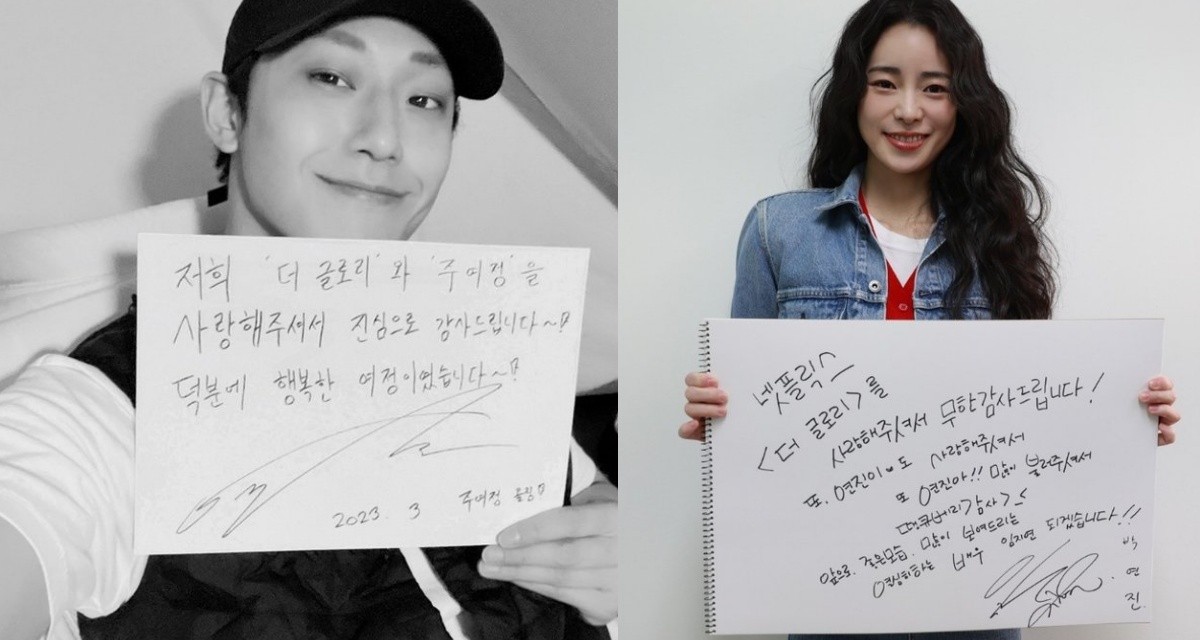 저희 '더 글로리'와 '주여정'을
사랑해주셔서 진심으로 감사드립니다~!
덕분에 행복한 여정이었습니다~!
2023. 3 주여정 올림
넷플릭스
<더 글로리>를
사랑해주셔서 무한감사드립니다!
또, 연진이도 사랑해주셔서
또 연진아!! 많이 불러주셔서
땡큐베리감사>_<
앞으로, 좋은모습, 많이 보여드리는
열심히하는 배우 임지연 되겠습니다!!
박
연
진.